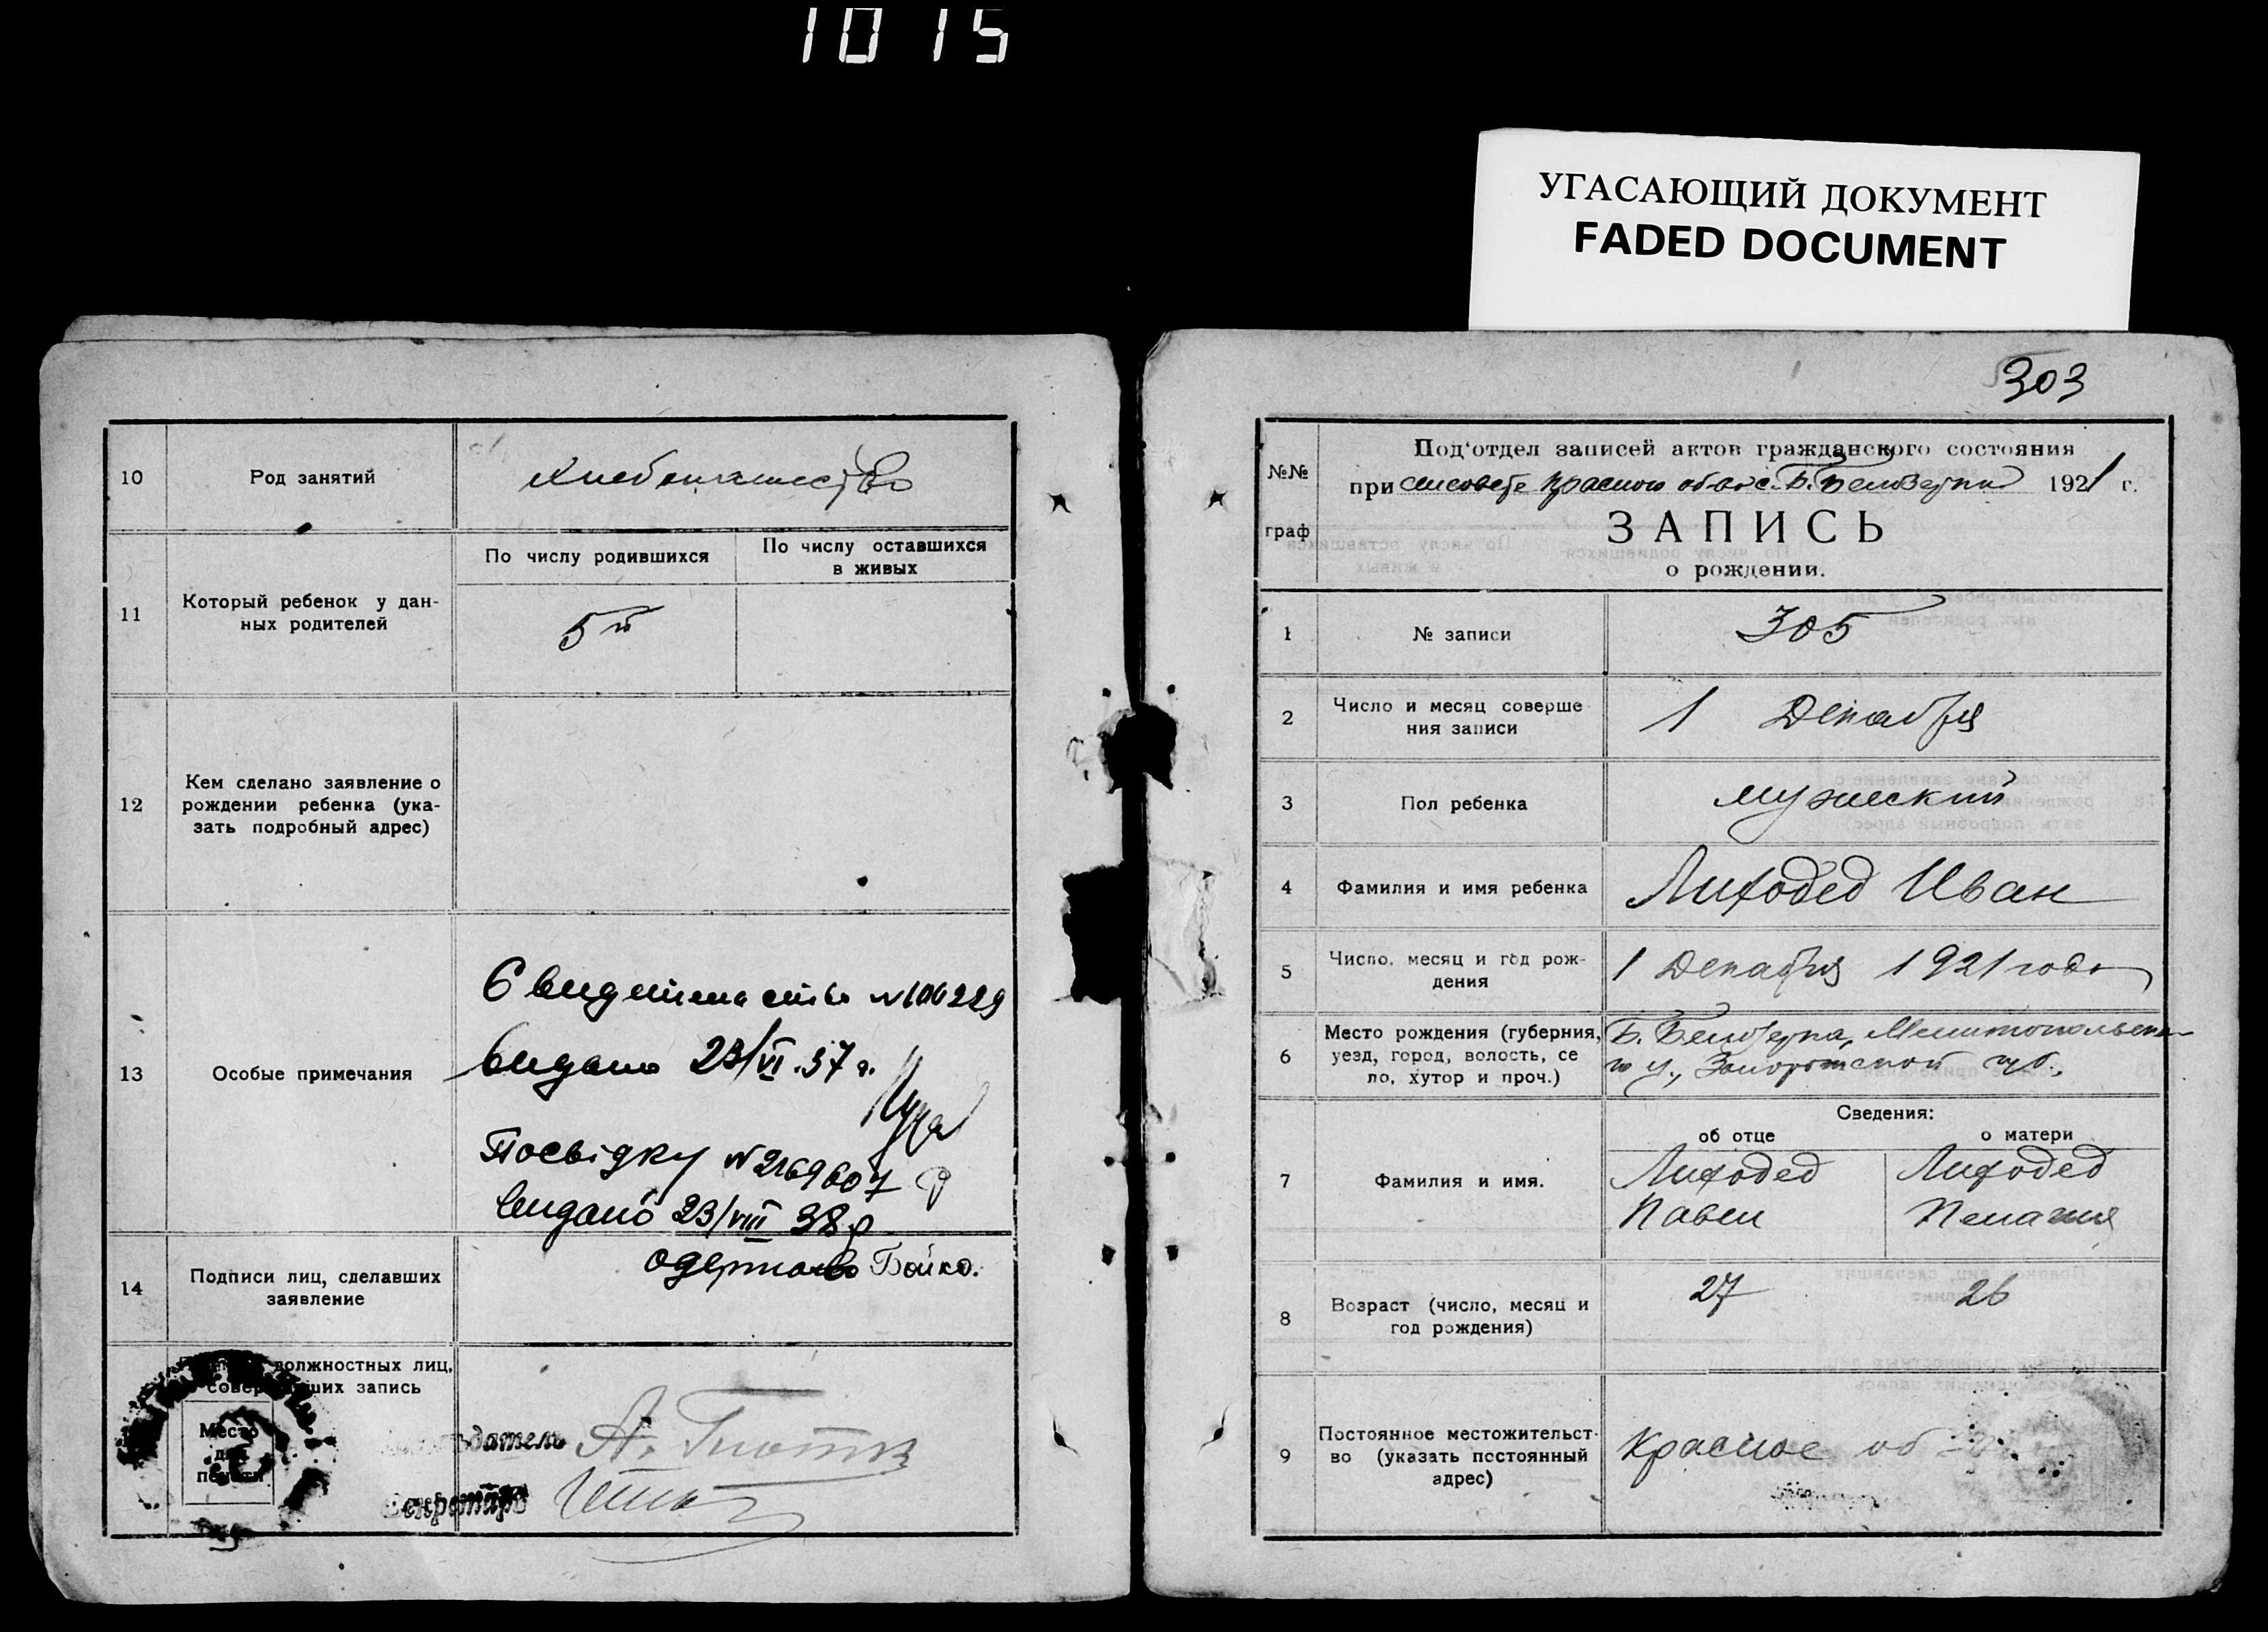 1015
УГАСАЮЩИЙ ДОКУМЕНТ
FADED DOCUMENT
10
Род занятий
Хлебопашество
11
Который ребенок у дан-
ных родителей
По числу родившихся
По числу оставшихся
в живых
5й
12
Кем сделано заявление о
рождении ребенка (ука-
зать подробный адрес)
13
Особые примечания
Свидетельство №106229
видано 23/VI.37 г.
Посвідку №2169607
видано 23/VIII 38 р
одержав Бойко.
14
Подписи лиц, сделавших
заявление
должностных лиц,
совер ших запись
Место
для
печати
датель А.
Секретарь
303
№№
граф
Под'отдел записей актов гражданского состояния
при сельсовете Красного об-ва с. Б. Белозерка 1921 г.
ЗАПИСЬ
о рождении.
1
№ записи
305
2
Число и месяц соверше
ния записи
1 Декабря
3
Пол ребенка
мужеский
4
Фамилия и имя ребенка
Лиходед Иван
5
Число, месяц и год рож-
дения
1 Декабря 1921 года
6
Место рождения (губерния,
уезд, город, волость, се
ло, хутор и проч.)
Б. Белозерка, Мелитопольско-
го у., Запорожской губ.
7
Фамилия и имя.
Сведения:
об отце
о матери
Лиходед
Павел
Лиходед
Пелагия
8
Возраст (число, месяц и
год рождения)
27
26
9
Постоянное местожительст-
во (указать постоянный
адрес)
Красное об